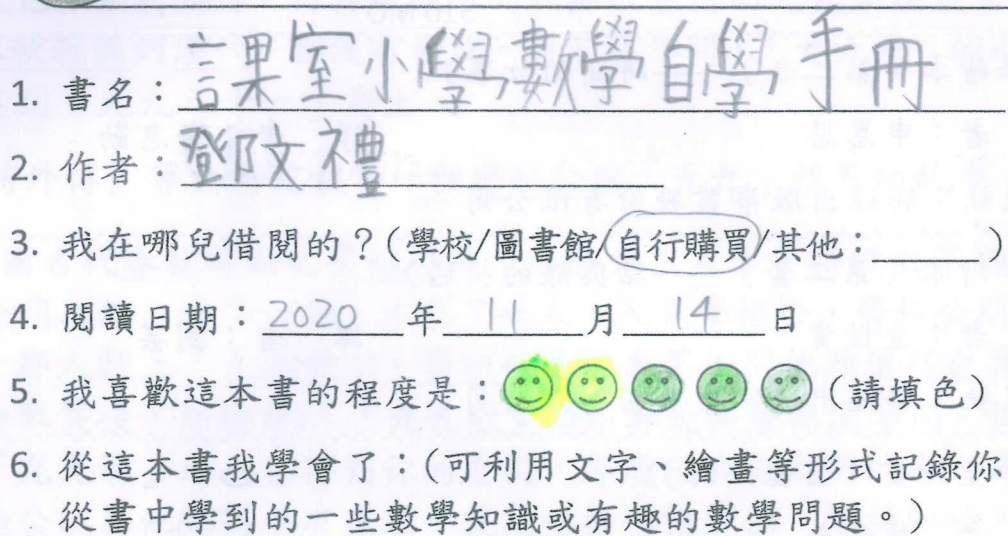 1. 書名：言果室小學數學自學手冊
2. 作者：鄧文禮
3. 我在哪兒借閱的？(學校/圖書館/自行購買/其他：______)
4. 閱讀日期：2020 年 11 月 14 日
5. 我喜歡這本書的程度是：(請填色)
6. 從這本書我學會了：(可利用文字、繪畫等形式記錄你
從書中學到的一些數學知識或有趣的數學問題。)